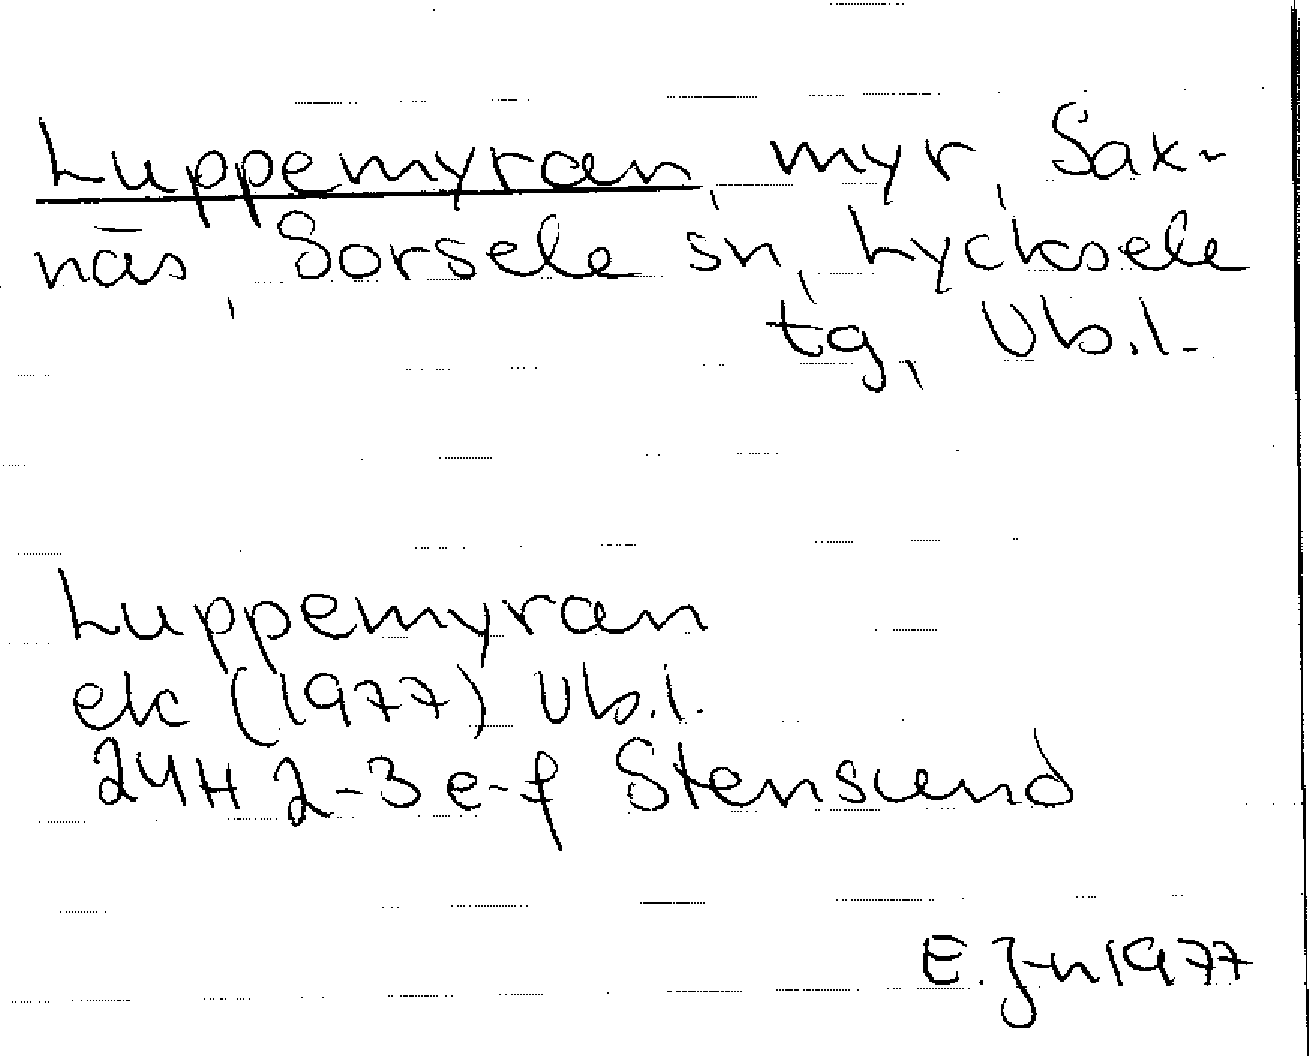 Luppemyran, myr, Sax-
näs, Sorsele sn, Lycksele
tg, Vb.l.
Luppemyran
ek (1977) Vb.l.
24H 2-3 e-f Stensund
E. J-n 1977